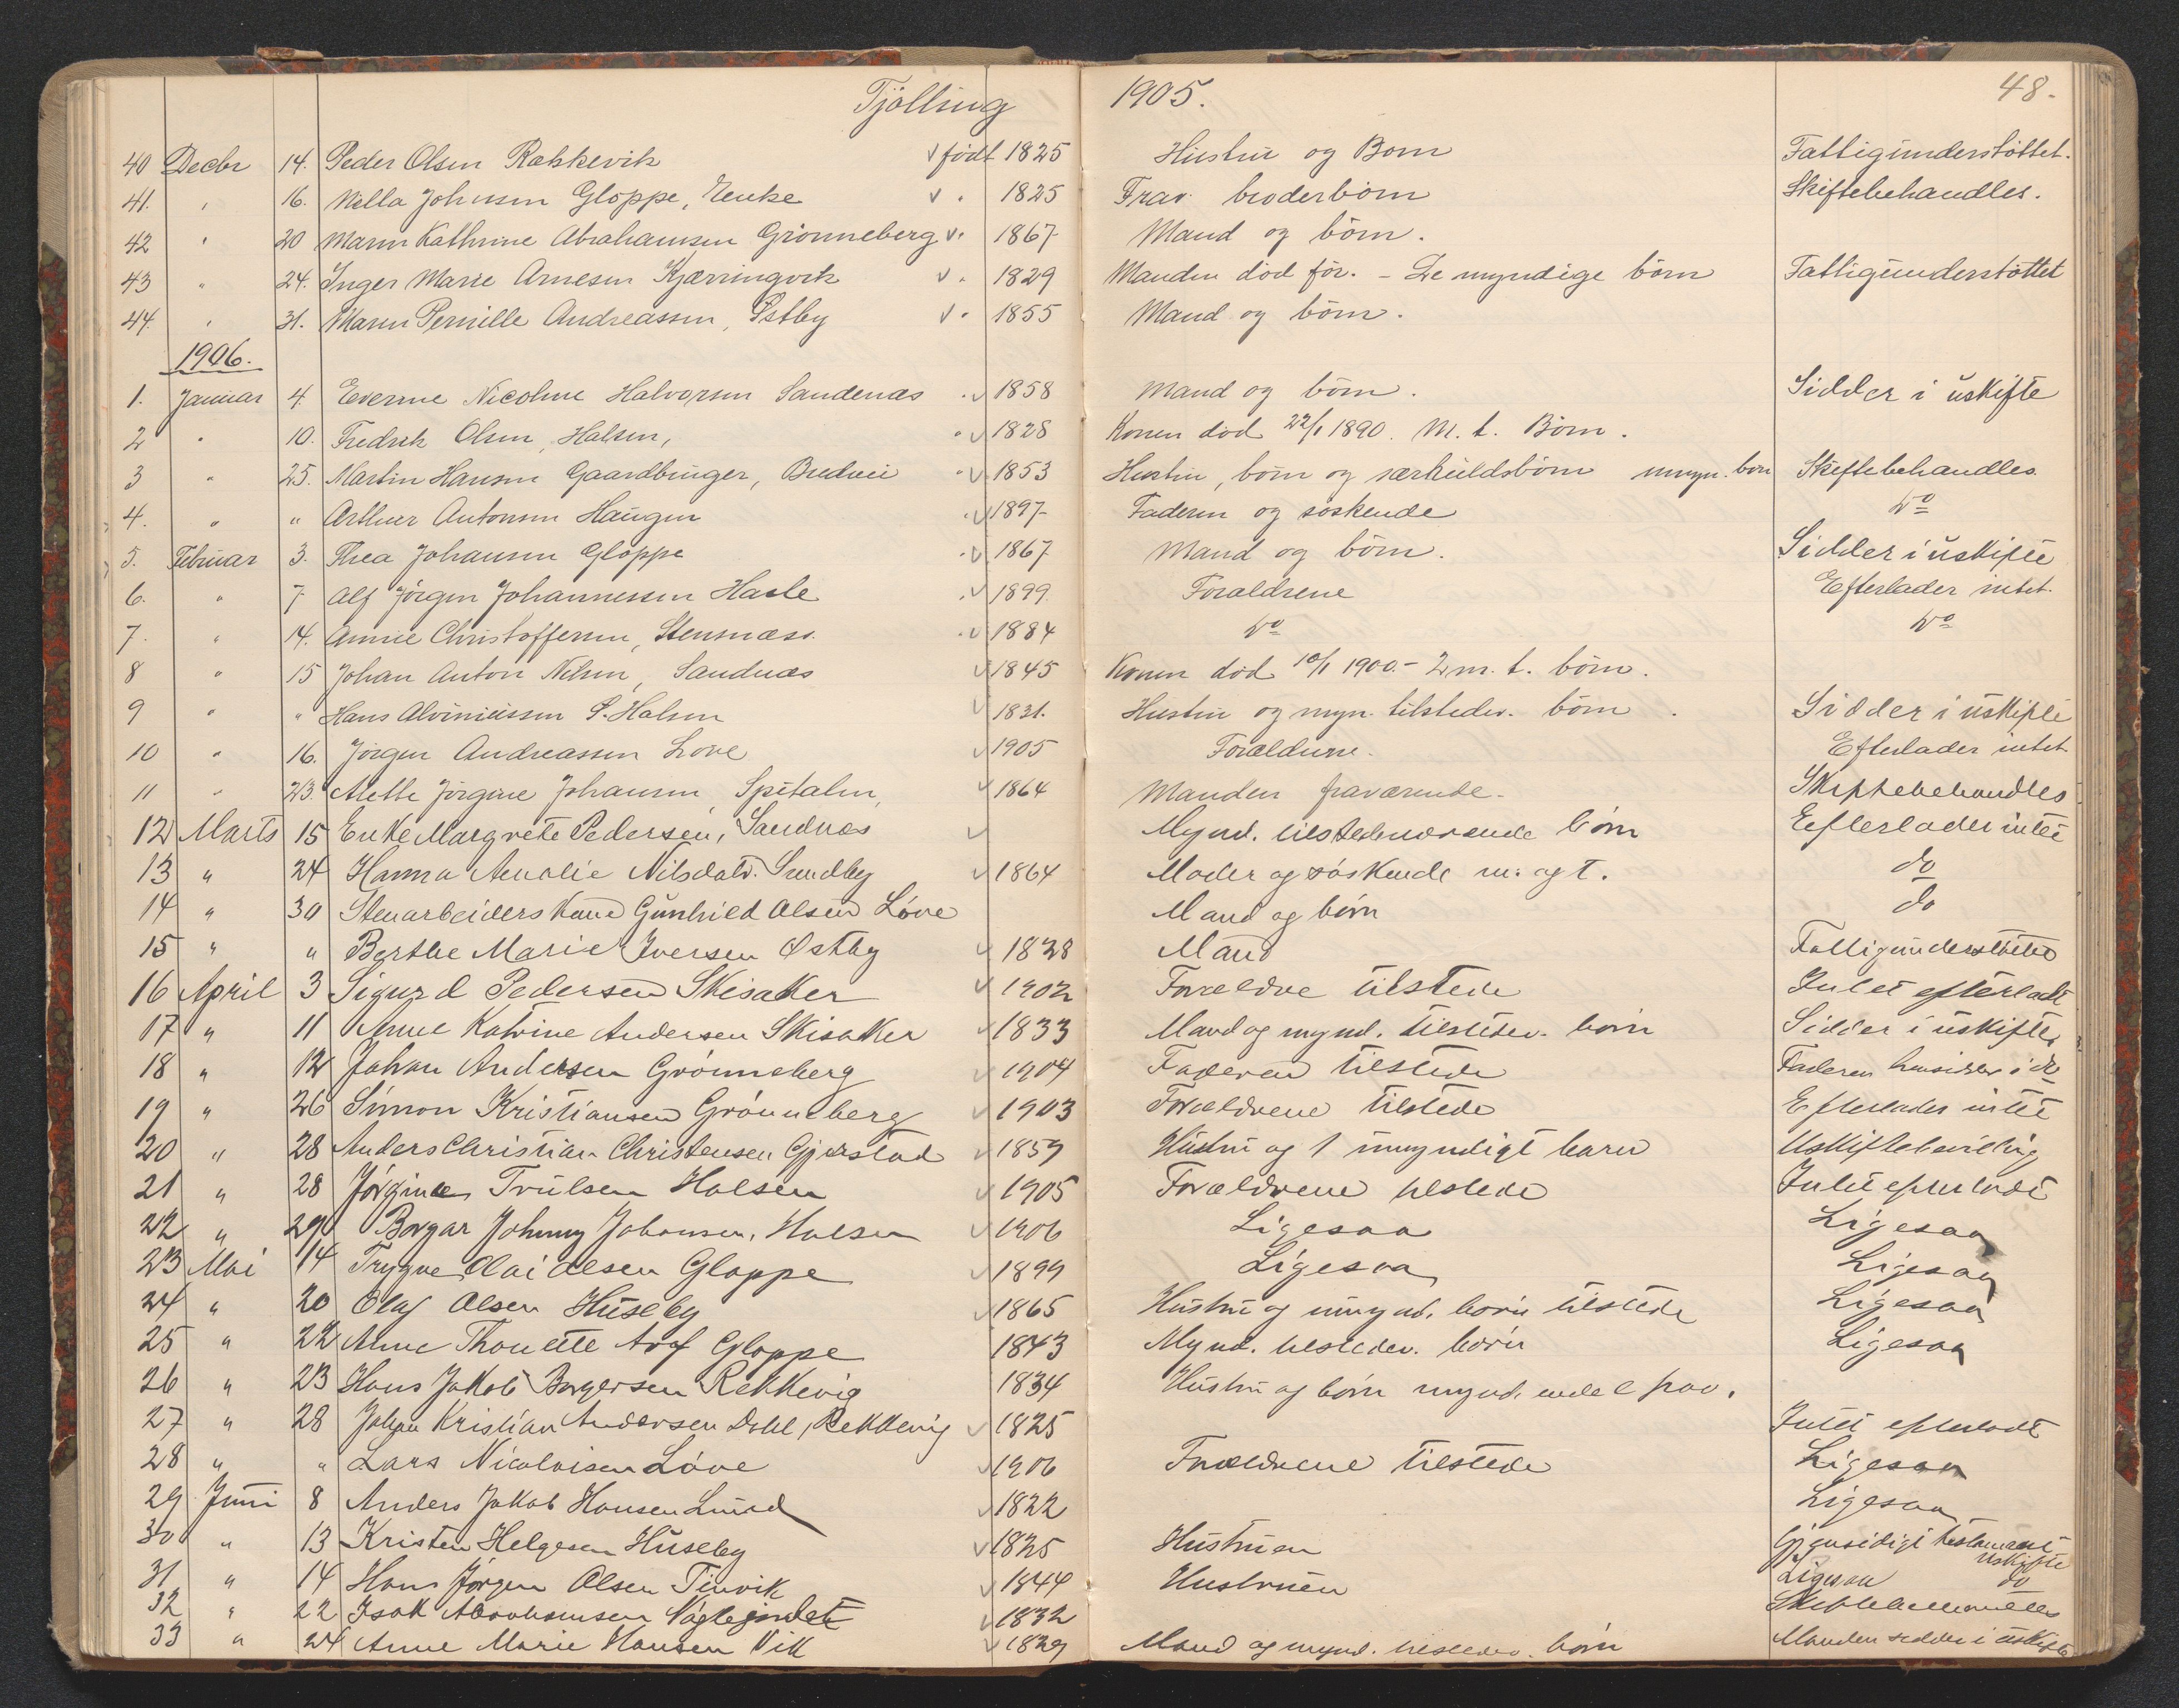 Tjølling 1905. 48.
40 Decbr 14. Peder Olsen Rakkevik født 1825 Hustru og Børn Fattigunderstøttet.
41. " 16. Nilla Johnsen Gloppe, Enke " 1825 Frav. broderbørn Skiftebehandles.
42 " 20 Maren Kathrine Abrahamsen Grønneberg " 1867 Mand og børn.
43 " 24. Inger Marie Arnesen Kjærringvik " 1829 Manden død før. - De myndige børn Fattigunderstøttet
44. " 31. Maren Pernille Andreassen, Østby " 1855 Mand og børn.
1906.
1. Januar 4. Everine Nicoline Halvorsen Sandenæs " 1858 Mand og børn. Sidder i uskifte
2 " 10. Fredrik Olsen, Halsen, " 1828 Konen død 22/1 1890. M. t. Børn.
3 " 25. Martin Hansen Gaardbruger, Bredvei " 1853 Hustru, børn og særkuldsbørn umyn. børn Skiftebehandles
4. " " Arthur Antonsen Haugen " 1897 Faderen og søskende Do
5. Februar 3. Thea Johansen Gloppe " 1867 Mand og børn. Sidder i uskifte
6. " 7. Alf Jørgen Johannessen Hasle " 1899 Forældrene Efterlader intet.
7. " 14. Annie Christoffersen, Stensnæss. " 1884 Do Do
8 " 15 Johan Anton Nilsen, Sandnæs 1845 Konen død 10/1 1900. - 2 m. t. børn.
9 " " Hans Alviniussen S. Halsen 1831. Hustru og myn. tilstedev. børn. Sidder i uskifte
10 " 16. Jørgen Andreassen Løve 1905 Forældrene. Efterlader intet.
11 " 23. Mette Jørgine Johansen, Spitalen, 1864 Manden fraværende. Skiftebehandles
12 Marts 15 Enke Margrete Pedersen, Sandnæs Mynd. tilstedeværende børn Eefterlader intet
13 " 24 Hanna Amalie Nilsdatr. Sundby 1864 Moder og søskende m. og t. do
14 " 30 Stenarbeiders Kone Gunhild Olsen Løve Mand og børn do
15 " " Berthe Marie Iversen Østby 1828 Mand Fattigunderstøttet
16 April 3 Sigurd Pedersen Skisaker 1902 Forældre tilstede Intet efterladt
17 " 11 Anne Katrine Andersen Skisaker 1833 Mand og mynd. tilstedev. børn Sidder i uskifte
18 " 12 Johan Andersen Grønneberg 1904 Faderen tilstede Faderen hensidder i do
19 " 26 Simon Kristiansen Grønneberg 1903 Forældrene tilstede Efterlader intet
20 " 28 Anders Christian Christensen Gjerstad 1859 Hustru og 1 umyndigt barn Uskiftebevilling
21 " 28 Jørgine Trulsen Halsen 1905 Forældrene tilstede Intet efterladt
22 " 29 Borgar Johnny Johansen, Halsen 1906 Ligesaa Ligesaa
23 Mai 14 Trygve Olai Olsen Gloppe 1899 Ligesaa Ligesaa
24 " 20 Olaf Olsen Huseby 1865 Hustru og umynd. børn tilstede Ligesaa
25 " 22 Anne Thonette Gloppe 1843 Mynd. tilstedev. børn Ligesaa
26 " 23 Hans Jakob Borgersen Rekkevig 1834 Hustru og børn mynd. endel frav.
27 " 28 Johan Kristian Andersen Dahl, Rekkevig 1825 Intet efterladt
28 " " Lars Nicolaisen Løve 1906 Forældrene tilstede Ligesaa
29 Juni 8 Anders Jakob Hansen Lund 1822 Ligesaa
30 " 13 Kristen Helgesen Huseby 1825 Hustruen Gjensidigt testament uskifte
31 " 14 Hans Jørgen Olsen Tinvik 1844 Hustruen Ligesaa do
32 " 22 Isak Abrahamsen 1832 Skiftebehandles
33 " 24 Anne Marie Hansen Vik 1829 Mand og mynd. tilstedev. børn Manden sidder i uskifte